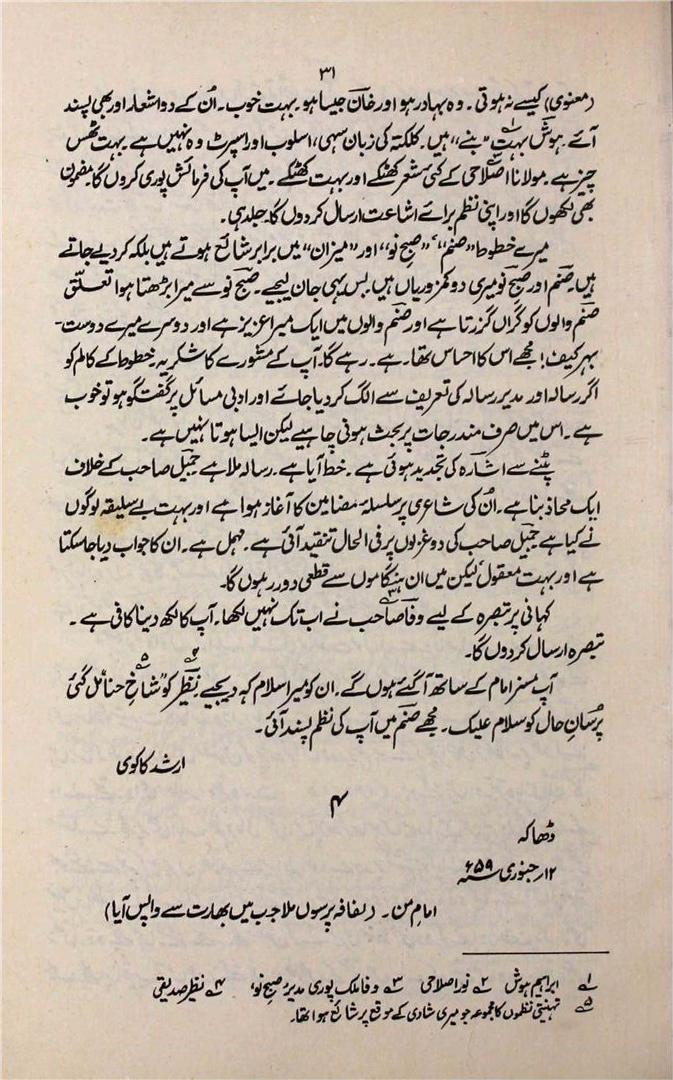 ۳۱
(معنوی) کیسے نہ ہوتی ۔ وہ بہادر ہو اور خان جیسا ہو۔ بہت خوب ۔ اُن کے دو اشعار اور بھی پسند
آئے ۔ ہوش۱ بہت "بنتے" ہیں۔ کلکتہ کی زبان سہی، اسلوب اور اسپرٹ وہ نہیں ہے۔ بہت ٹھس
چیز ہے۔ مولانا اصلاحی۲ کے کئی شعر کھٹکے اور بہت کھٹکے ۔ میں آپ کی فرمائش پوری کروں گا۔ مضمون
بھی لکھوں گا اور اپنی نظم برائے اشاعت ارسال کر دوں گا۔ جلد ہی۔
میرے خطوط "صنم"، "صبح نو" اور "میزان" میں برابر شائع ہوتے ہیں بلکہ کر دیے جاتے
ہیں۔ صنم اور صبح نو میری دو کمزوریاں ہیں۔ بس یہی جان لیجیے۔ صبح نو سے میرا بڑھتا ہوا تعلق
صنم والوں کو گراں گزرتا ہے اور صنم والوں میں ایک میرا عزیز ہے اور دوسرے میرے دوست۔
بہر کیف! مجھے اس کا احساس تھا۔ ہے۔ رہے گا۔ آپ کے مشورے کا شکریہ۔ خطوط کے کالم کو
اگر رسالہ اور مدیر رسالہ کی تعریف سے الگ کر دیا جائے اور ادبی مسائل پر گفتگو ہو تو خوب
ہے۔ اس میں صرف مندرجات پر بحث ہونی چاہیے لیکن ایسا ہوتا نہیں ہے۔
پٹنے سے اشارہ کی تجدید ہوئی ہے ۔ خط آیا ہے۔ رسالہ ملا ہے جمیل صاحب کے خلاف
ایک محاذ بنا ہے۔ اُن کی شاعری پر سلسلۂ مضامین کا آغاز ہوا ہے اور بہت بے سلیقہ لوگوں
نے کیا ہے جمیل صاحب کی دو غزلوں پر فی الحال تنقید آئی ہے۔ مہمل ہے۔ ان کا جواب دیا جا سکتا
ہے اور بہت معقول، لیکن میں ان ہنگاموں سے قطعی دور رہوں گا۔
کہانی پر تبصرہ کے لیے وفا صاحب۳ نے اب تک نہیں لکھا۔ آپ کا لکھ دینا کافی ہے ۔
تبصرہ ارسال کر دوں گا۔
آپ مسنر امام کے ساتھ آ گئے ہوں گے۔ ان کو میرا سلام کہہ دیجیے۔ نظیر۴ کو "شاخِ حنا"۵ مل گئی
پرُسانِ حال کو سلام علیک۔ مجھے صنم میں آپ کی نظم پسند آئی۔
ارشد کاکوی
۴
ڈھاکہ
۱۲؍ جنوری ۵۹ء
امام من ۔ (لفافہ پرسوں ملا جب میں بھارت سے واپس آیا)
۱ ابراہیم ہوش ۲ نور اصلاحی ۳ وفا ملک پوری مدیر صبح نو، ۴ نظیر صدیقی
۵ تہنیتی نظموں کا مجموعہ جو میری شادی کے موقع پر شائع ہوا تھا۔